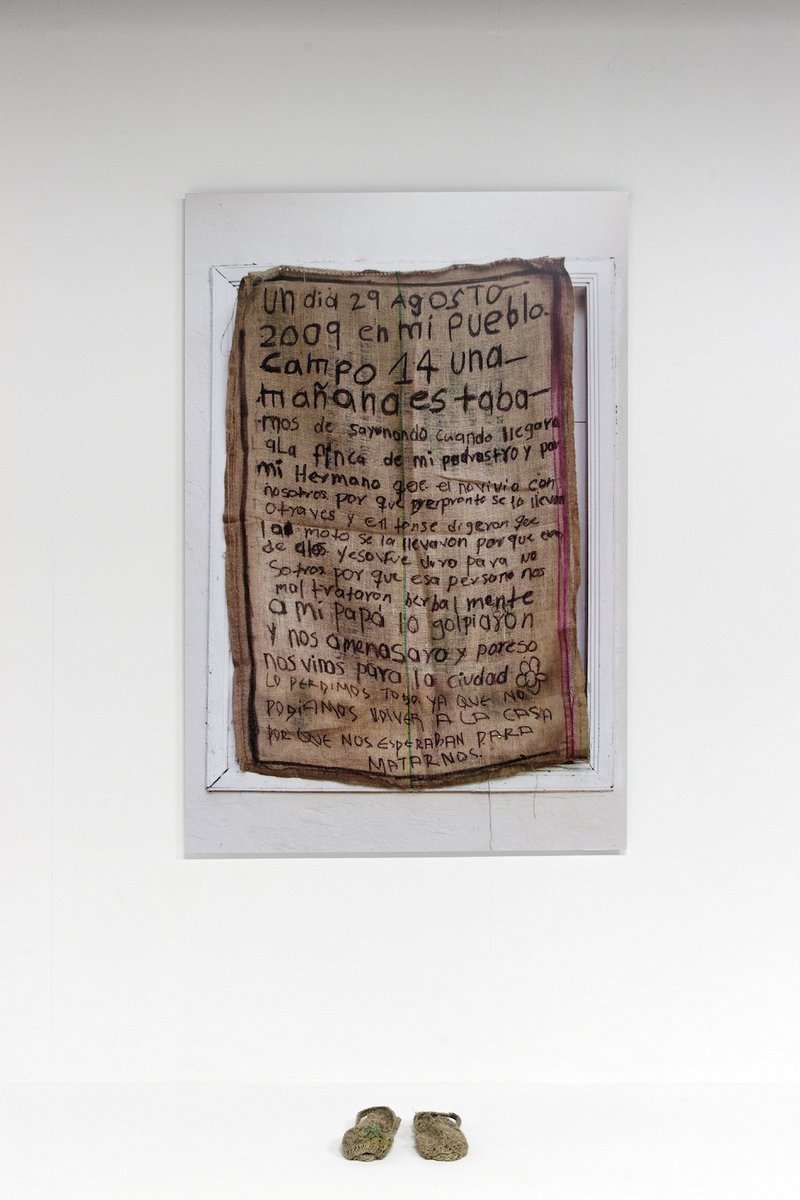 Un dia 29 Agosto
2009 en mi Pueblo.
Campo 14 una
mañana estaba
mos de sayunando cuando llegara
aLa finca de mi padrastro y por
mi Hermano que el novivia con
nosotros por que perpronto se lo llevan
otraves y entonse digeron que
la moto se la llevavon por que era
de ellos yesofue duro para no
sotros por que esa persona nos
mal trataron berbal mente
a mi papá lo golpiaron
y nos amenasaro y poreso
nos vinos para la ciudad
LO PERDIMOS TODO YA QUE NO
PODIAMOS VOLVER A LA CASA
POR QUE NOS ESPERABAN PARA
MATARNOS.